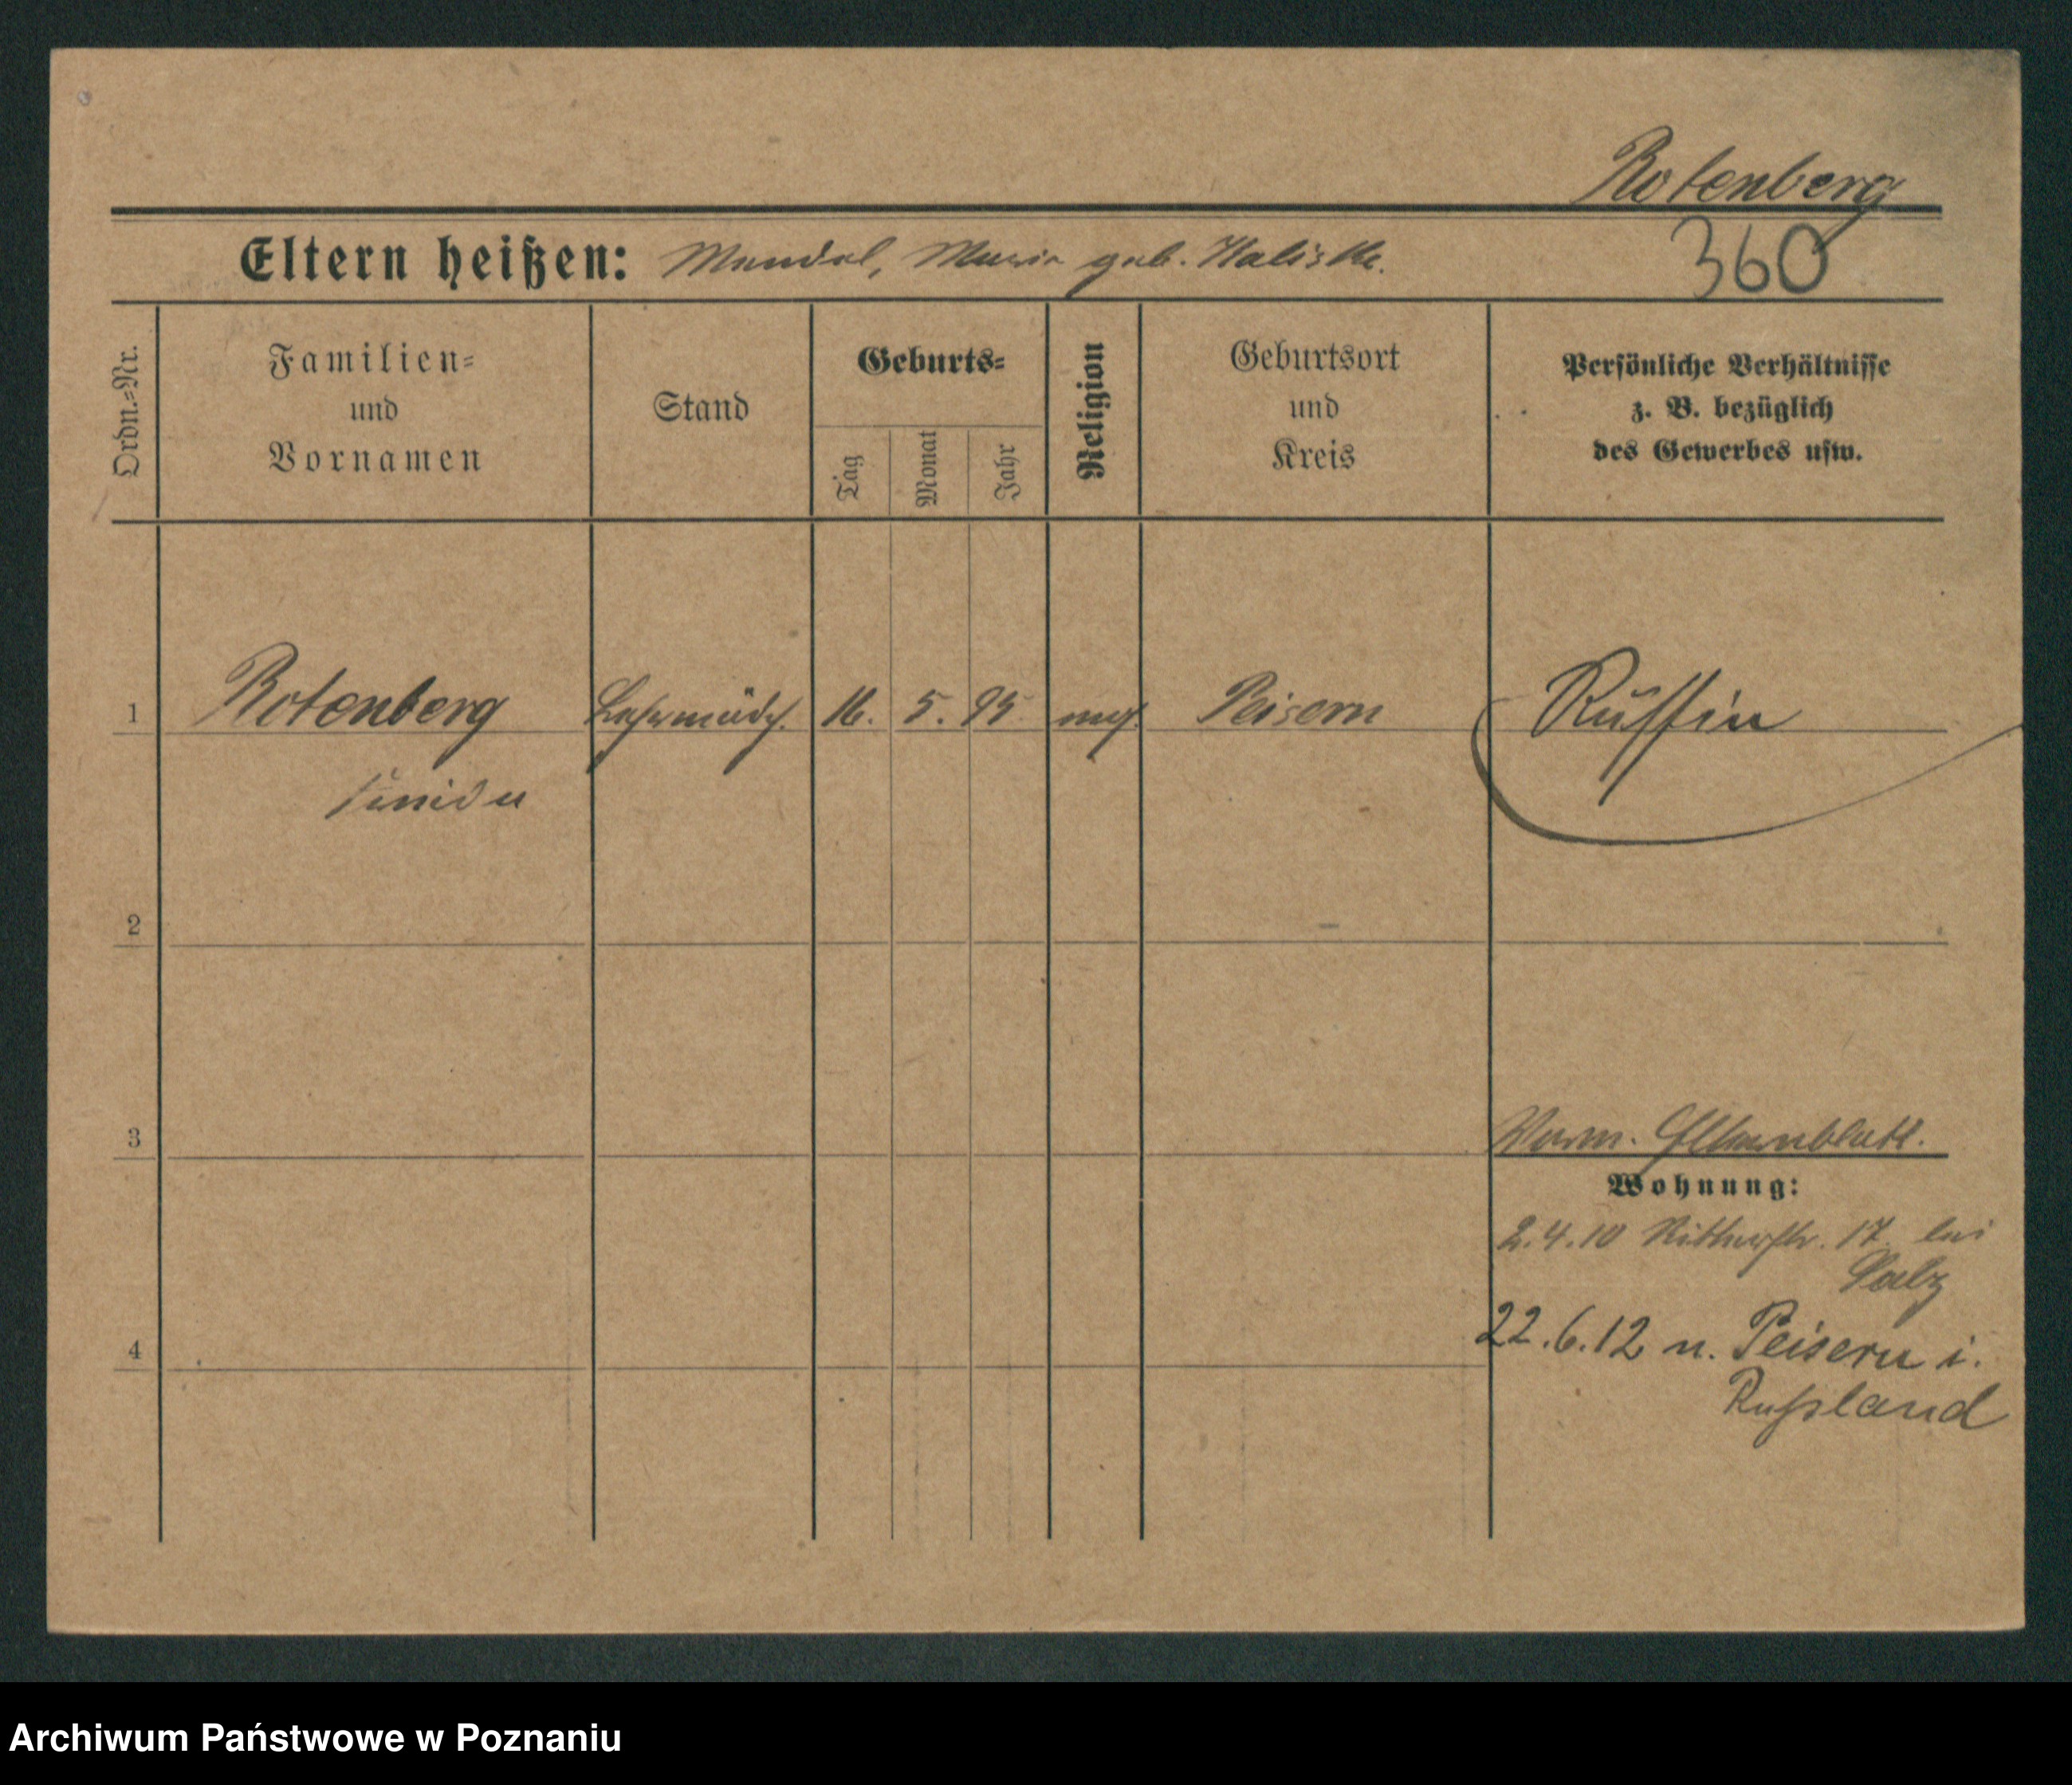 Rotenberg
Eltern heißen: Mendel, Marie geb. Kaliske.
360
Ordn.-Nr.
Familien-
und
Vornamen
Stand
Geburts-
Tag
Monat
Jahr
Religion
Geburtsort
und
Kreis
Persönliche Verhältnisse
z. B. bezüglich
des Gewerbes usw.
1 Rotenberg Lehrmädch. 16. 5. 95. mos. Peisern Russin
2
3
Verm. Elternblatt.
Wohnung:
2.4.10 Ritterstr. 17 bei
Salz
22.6.12 n. Peisern i.
Russland
4
Archiwum Państwowe w Poznaniu